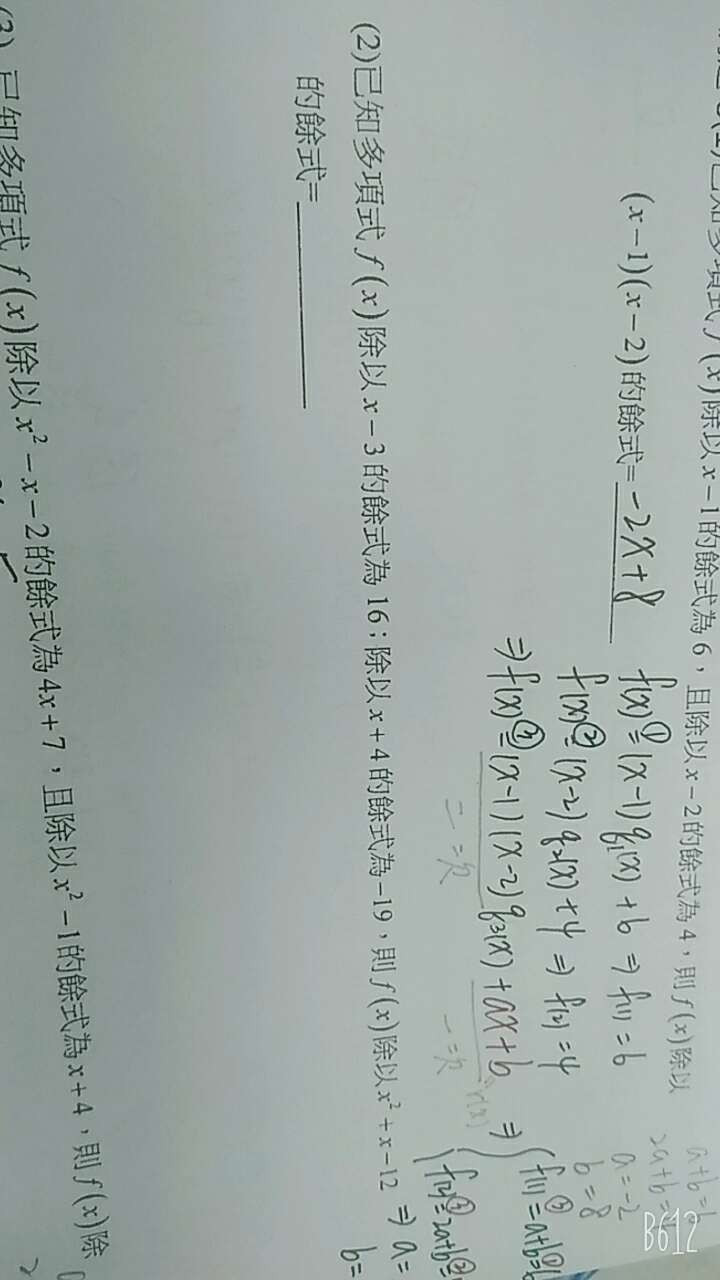 (1)已知多項式 f(x) 除以 x−1 的餘式為 6，且除以 x−2 的餘式為 4，則 f(x) 除以
(x−1)(x−2) 的餘式= −2x+8
f(x) ①= (x−1) q₁(x) + 6 ⇒ f(1) = 6
f(x) ②= (x−2) q₂(x) + 4 ⇒ f(2) = 4
⇒ f(x) ③= (x−1)(x−2) q₃(x) + ax+b
二次
一次
r(x)
⇒ { f(1) ③= a+b ①= 6
f(2) ③= 2a+b ②=
a+b=6
2a+b=
a=−2
b=8
⇒ a=
b=
(2)已知多項式 f(x) 除以 x−3 的餘式為 16；除以 x+4 的餘式為 −19，則 f(x) 除以 x²+x−12
的餘式=
(3) 已知多項式 f(x) 除以 x²−x−2 的餘式為 4x+7，且除以 x²−1 的餘式為 x+4，則 f(x) 除
B612